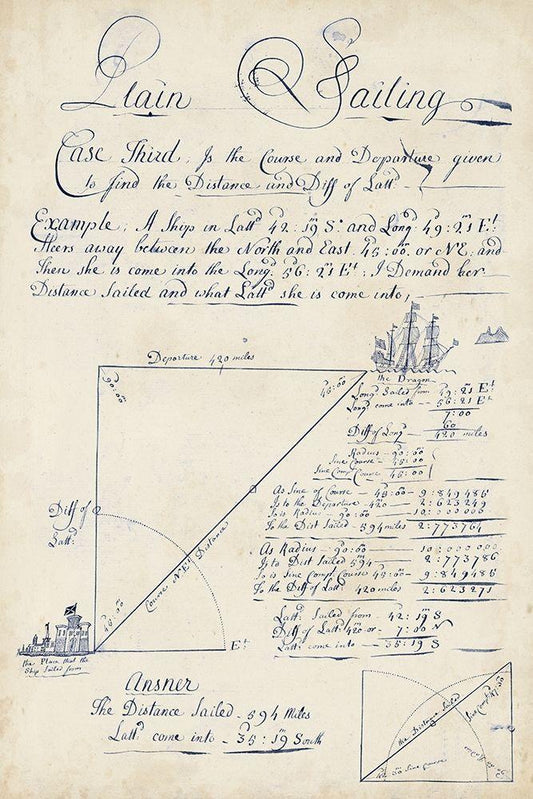 Plain Sailing
Case Third. Is the Course and Departure given
to find the Distance and Diff of Lattd
Example: A Ship in Lattd 42:19 So and Long 49:21 Et:
Steers away between the North and East 45:00, or NE, and
Then she is come into the Long: 56:21 Et; I Demand her
Distance Sailed and what Lattd she is come into,
Departure 420 miles
90:00
45:00
the Dragon
Long: Sailed from 49:21 Et
Longd come into -- 56:21 E
7:00
60
Diff of Long -- 420 miles
Radius - 90:00
Sine Course - 45:00
Sine Comp Course 45:00
As Sine of Course -- 45:00 - 9:849486
Is to the Departure - 420 -- 2:623249
So is Radius 90:00 -- 10:000000
To the Dist Sailed - 594 miles 2:773764
As Radius -- 90:00 -- 10:000000
Is to Dist Sailed 594 -- 2:773786
So is Sine Comp: Course 45:00 - 9:849486
To the Diff of Latt: 420 miles 2:623271
Latt: Sailed from - 42:19 S
Diff of Latt: 420 or - 7:00 N
Latt: come into -- 35:19 S
Diff of
Latt:
Course NEt Distance
45:00
Et
the Place that the
Ship Sailed from
Answer
The Distance Sailed - 594 Miles
Lattd come into - 35:19 South
the Distance Sailed
Sine Comp
Sine Course